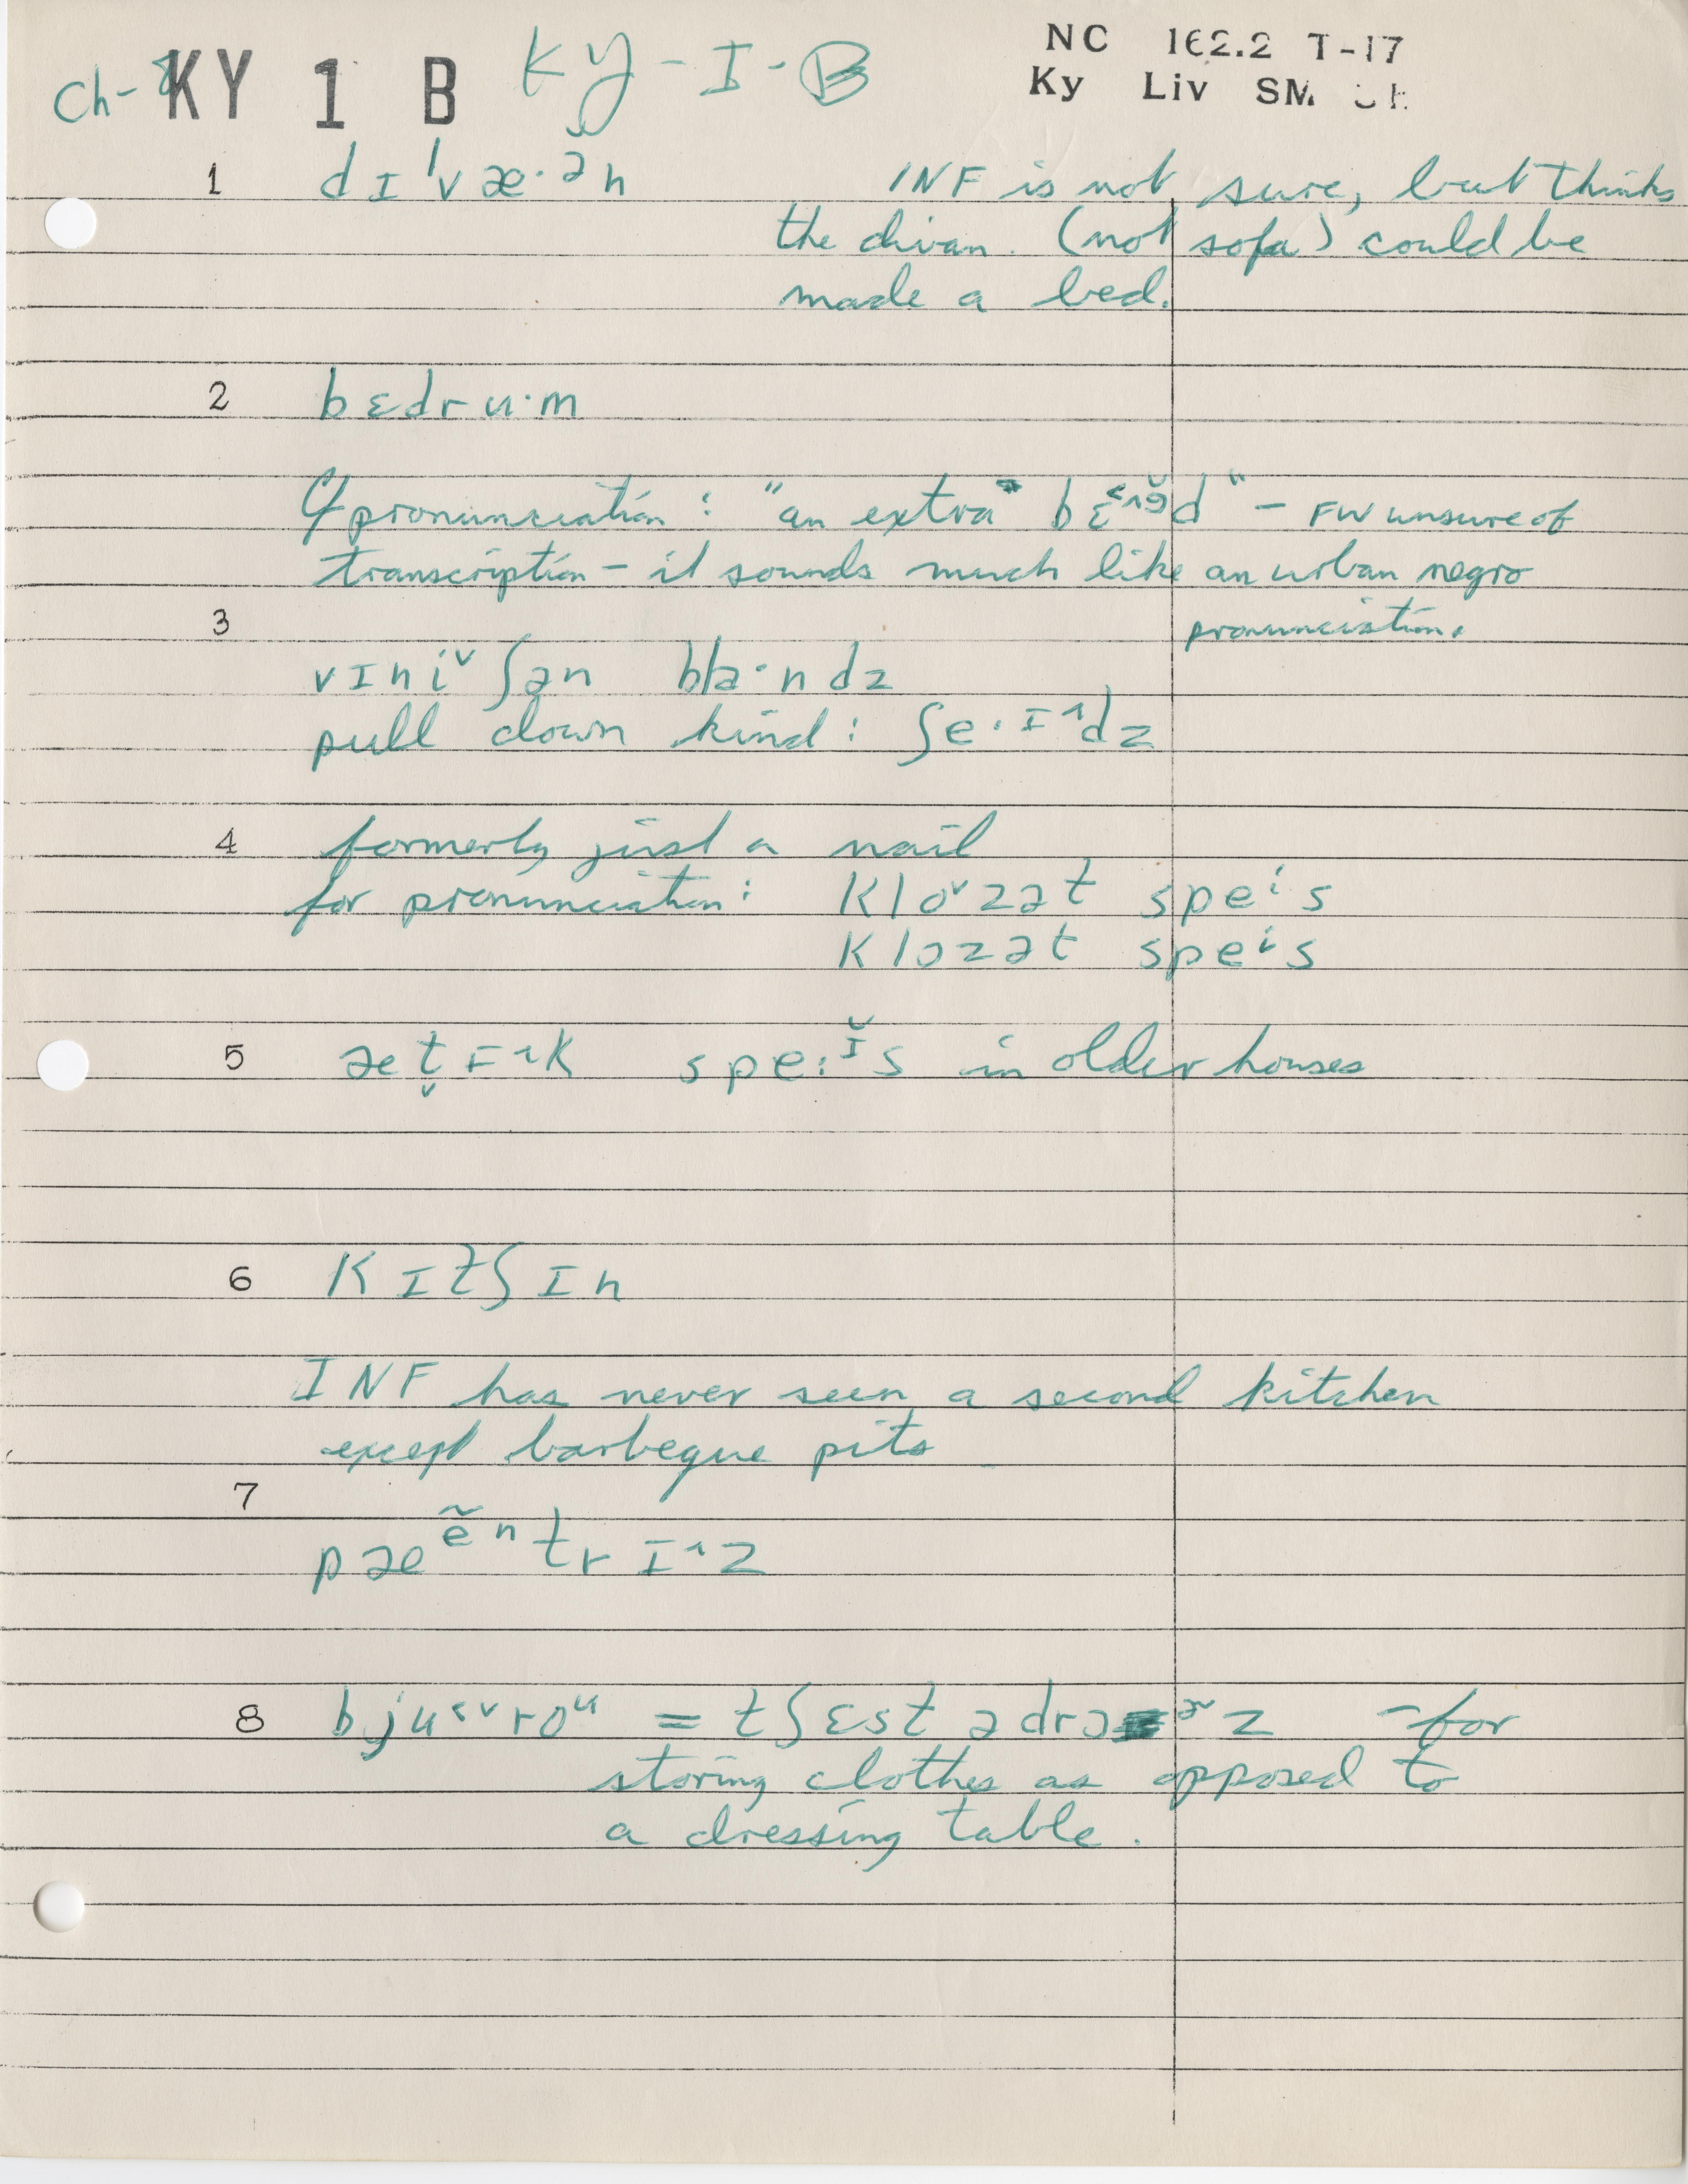 Ch-8 KY 1 B KY-I-B NC 162.2 T-17
Ky Liv SM
1 dɪˈvæ·ən INF is not sure, but thinks
the divan (not sofa) could be
made a bed.
2 bɛdru·m
Cf pronunciation: "an extra bɛ˂˄ə̆d" – FW unsure of
transcription – it sounds much like an urban negro
pronunciation.
3
vɪniˇʃən bla·ndz
pull down kind: ʃe·ɪ˄dz
4 formerly just a nail
for pronunciation: kloˇzət speⁱs
klɔzət speⁱs
5 æt̬ɪ˄k spe:ɪ̆s in older houses
6 kɪtʃɪn
INF has never seen a second kitchen
except barbeque pits
7
pæẽⁿtrɪ˄z
8 bju˂ˇroᵘ = tʃɛst ədrɔɚz – for
storing clothes as opposed to
a dressing table.